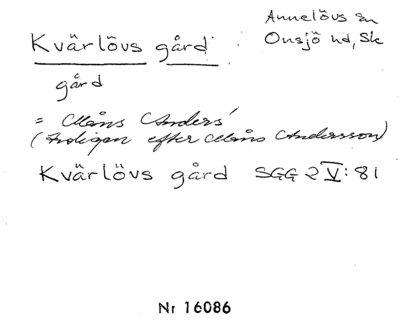 Kvärlövs gård
Annelövs sn
Onsjö hd, Sk
gård
= Måns Anders'
(Troligen efter Måns Andersson)
Kvärlövs gård SGG 2 V: 81
Nr 16086